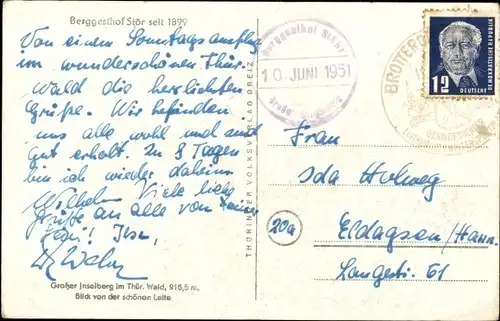 Berggasthof Stör seit 1899
Von einem Sonntagsausflug
im wunderschönen Thür.
Wald die herzlichsten
Grüße. Wir befinden
uns alle wohl und sind
gut erholt. In 8 Tagen
bin ich wieder daheim
Wilhelm Viele liebe
Grüße an alle von
Großer Inselberg im Thür. Wald, 916,5 m,
Blick von der schönen Leite
THÜRINGER VOLKSVERLAG
Berggasthof Stör
10. JUNI 1951
Großer
BROTTERODE
12
DEUTSCHE
DEMOKRATISCHE REPUBLIK
Frau
Ida Holweg
20a
Eldagsen/Hann.
Langestr. 61